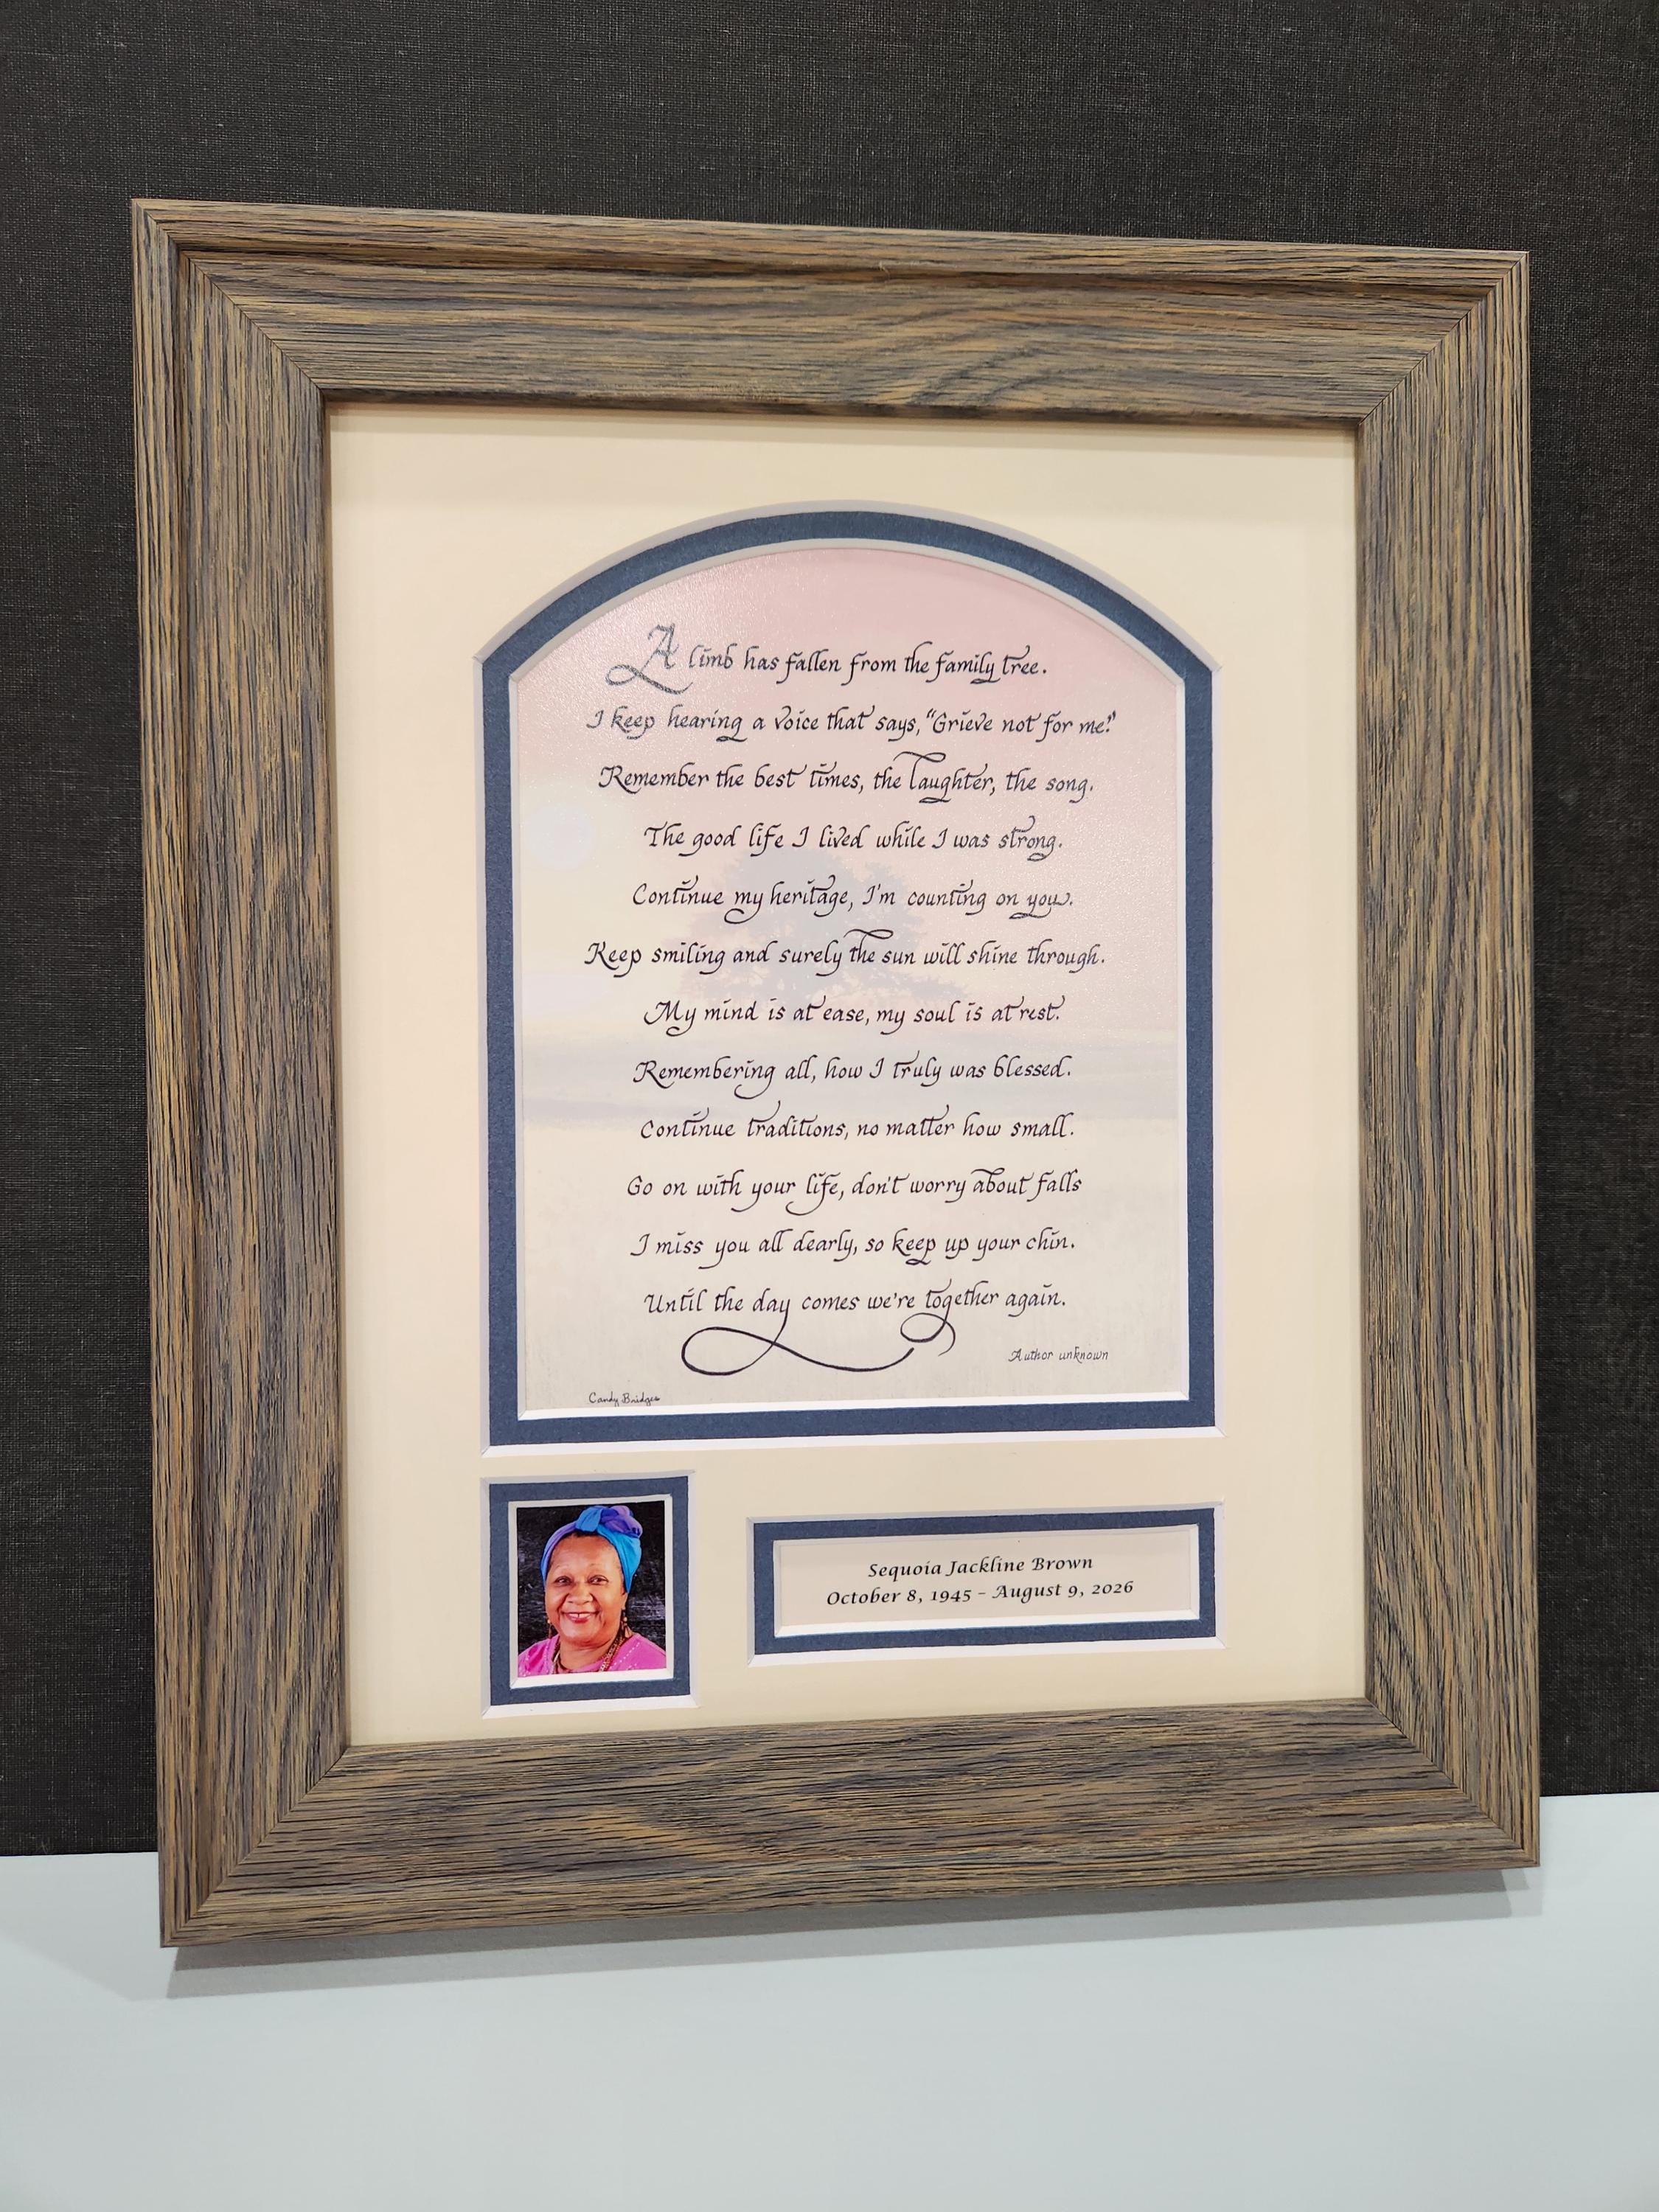 A limb has fallen from the family tree.
I keep hearing a voice that says, "Grieve not for me."
Remember the best times, the laughter, the song.
The good life I lived while I was strong.
Continue my heritage, I'm counting on you.
Keep smiling and surely the sun will shine through.
My mind is at ease, my soul is at rest.
Remembering all, how I truly was blessed.
Continue traditions, no matter how small.
Go on with your life, don't worry about falls
I miss you all dearly, so keep up your chin.
Until the day comes we're together again.
Author unknown
Candy Bridges
Sequoia Jackline Brown
October 8, 1945 - August 9, 2026